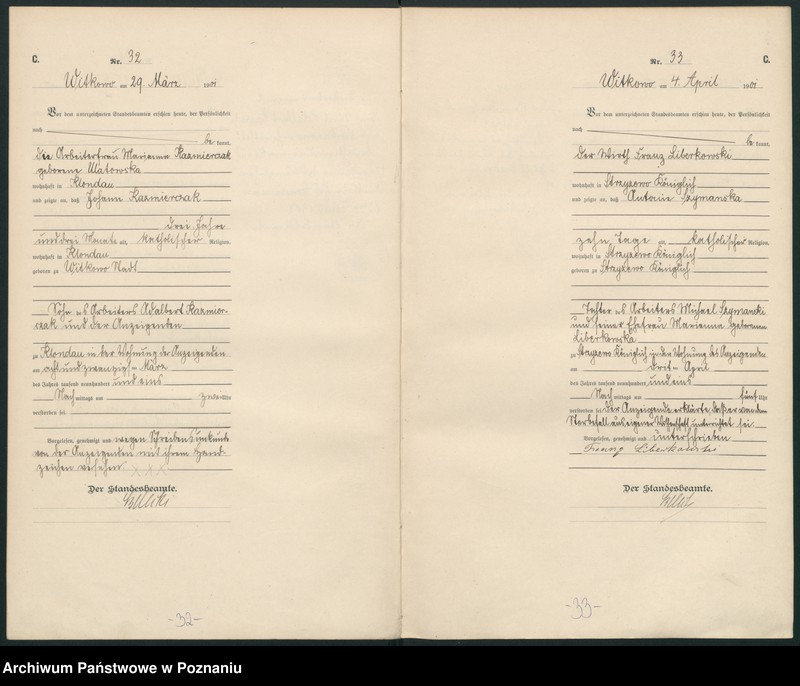 C.
Nr. 32
Witkowo am 29. März 1901
Vor dem unterzeichneten Standesbeamten erschien heute, der Persönlichkeit
nach
be kannt,
die Arbeiterfrau Marianna Kazmierczak
geborene Matowska
wohnhaft in Klondau
und zeigte an, daß Johann Kazmierczak
drei Jahre
und drei Monate alt, katholischer Religion,
wohnhaft in Klondau
geboren zu Witkowo Stadt
Sohn des Arbeiters Adalbert Kazmier-
czak und der Anzeigenden
zu Klondau in der Wohnung der Anzeigenden
am achtundzwanzigsten März
des Jahres tausend neunhundert und eins
Nach mittags um
verstorben sei.
Vorgelesen, genehmigt und wegen Schreibensunkunde
von der Anzeigenden mit ihrem Hand-
zeichen versehen XXX
Der Standesbeamte.
-32-
Nr. 33
C.
Witkowo am 4. April 1901
Vor dem unterzeichneten Standesbeamten erschien heute, der Persönlichkeit
nach
be kannt,
der Wirth Franz Liberkowski
wohnhaft in Strzyzewo Königlich
und zeigte an, daß Antonie Szymanska
zehn Tage alt, katholischer Religion,
wohnhaft in Strzyzewo Königlich
geboren zu Strzyzewo Königlich
Tochter des Arbeiters Michael Szymanski
und seiner Ehefrau Marianna geborenen
Liberkowska
zu Strzyzewo Königlich in der Wohnung des Anzeigenden
am dritten April
des Jahres tausend neunhundert und eins
Nach mittags um fünf Uhr
verstorben sei. Der Anzeigende erklärte, daß er von dem
Sterbefall aus eigener Wissenschaft unterrichtet sei.
Vorgelesen, genehmigt und unterschrieben
Franz Liberkowski
Der Standesbeamte.
-33-
Archiwum Państwowe w Poznaniu